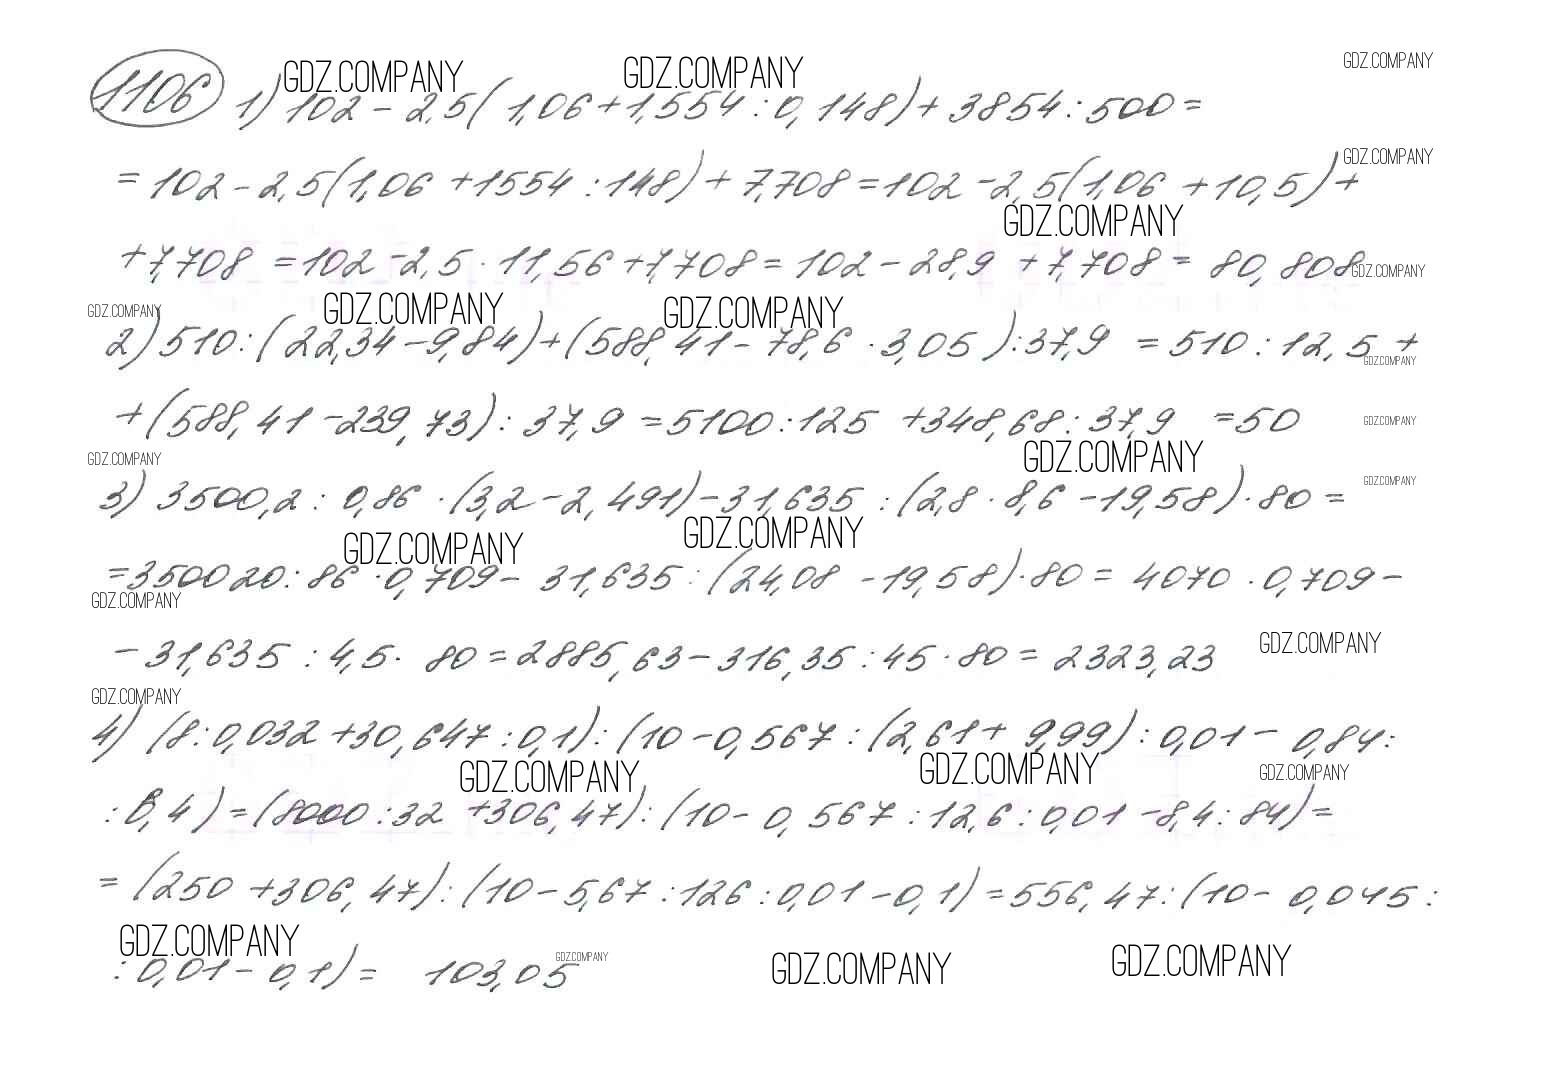 GDZ.COMPANY GDZ.COMPANY GDZ.COMPANY
1106 1) 102 - 2,5( 1,06 + 1,554 : 0,148) + 3854 : 500 =
GDZ.COMPANY
= 102 - 2,5(1,06 + 1554 : 148) + 7,708 = 102 - 2,5(1,06 + 10,5) +
GDZ.COMPANY
+ 7,708 = 102 - 2,5 · 11,56 + 7,708 = 102 - 28,9 + 7,708 = 80,808
GDZ.COMPANY
GDZ.COMPANY GDZ.COMPANY GDZ.COMPANY
2) 510 : (22,34 - 9,84) + (588,41 - 78,6 · 3,05) : 37,9 = 510 : 12,5 +
GDZ.COMPANY
+ (588,41 - 239,73) : 37,9 = 5100 : 125 + 348,68 : 37,9 = 50
GDZ.COMPANY
GDZ.COMPANY GDZ.COMPANY GDZ.COMPANY
3) 3500,2 : 0,86 · (3,2 - 2,491) - 31,635 : (2,8 · 8,6 - 19,58) · 80 =
GDZ.COMPANY GDZ.COMPANY
= 350020 : 86 · 0,709 - 31,635 : (24,08 - 19,58) · 80 = 4070 · 0,709 -
GDZ.COMPANY
- 31,635 : 4,5 · 80 = 2885,63 - 316,35 : 45 · 80 = 2323,23
GDZ.COMPANY
GDZ.COMPANY
4) (8 : 0,032 + 30,647 : 0,1) : (10 - 0,567 : (2,61 + 9,99) : 0,01 - 0,84 :
GDZ.COMPANY GDZ.COMPANY GDZ.COMPANY
: 8,4) = (8000 : 32 + 306,47) : (10 - 0,567 : 12,6 : 0,01 - 8,4 : 84) =
= (250 + 306,47) : (10 - 5,67 : 126 : 0,01 - 0,1) = 556,47 : (10 - 0,045 :
GDZ.COMPANY GDZ.COMPANY GDZ.COMPANY GDZ.COMPANY
: 0,01 - 0,1) = 103,05